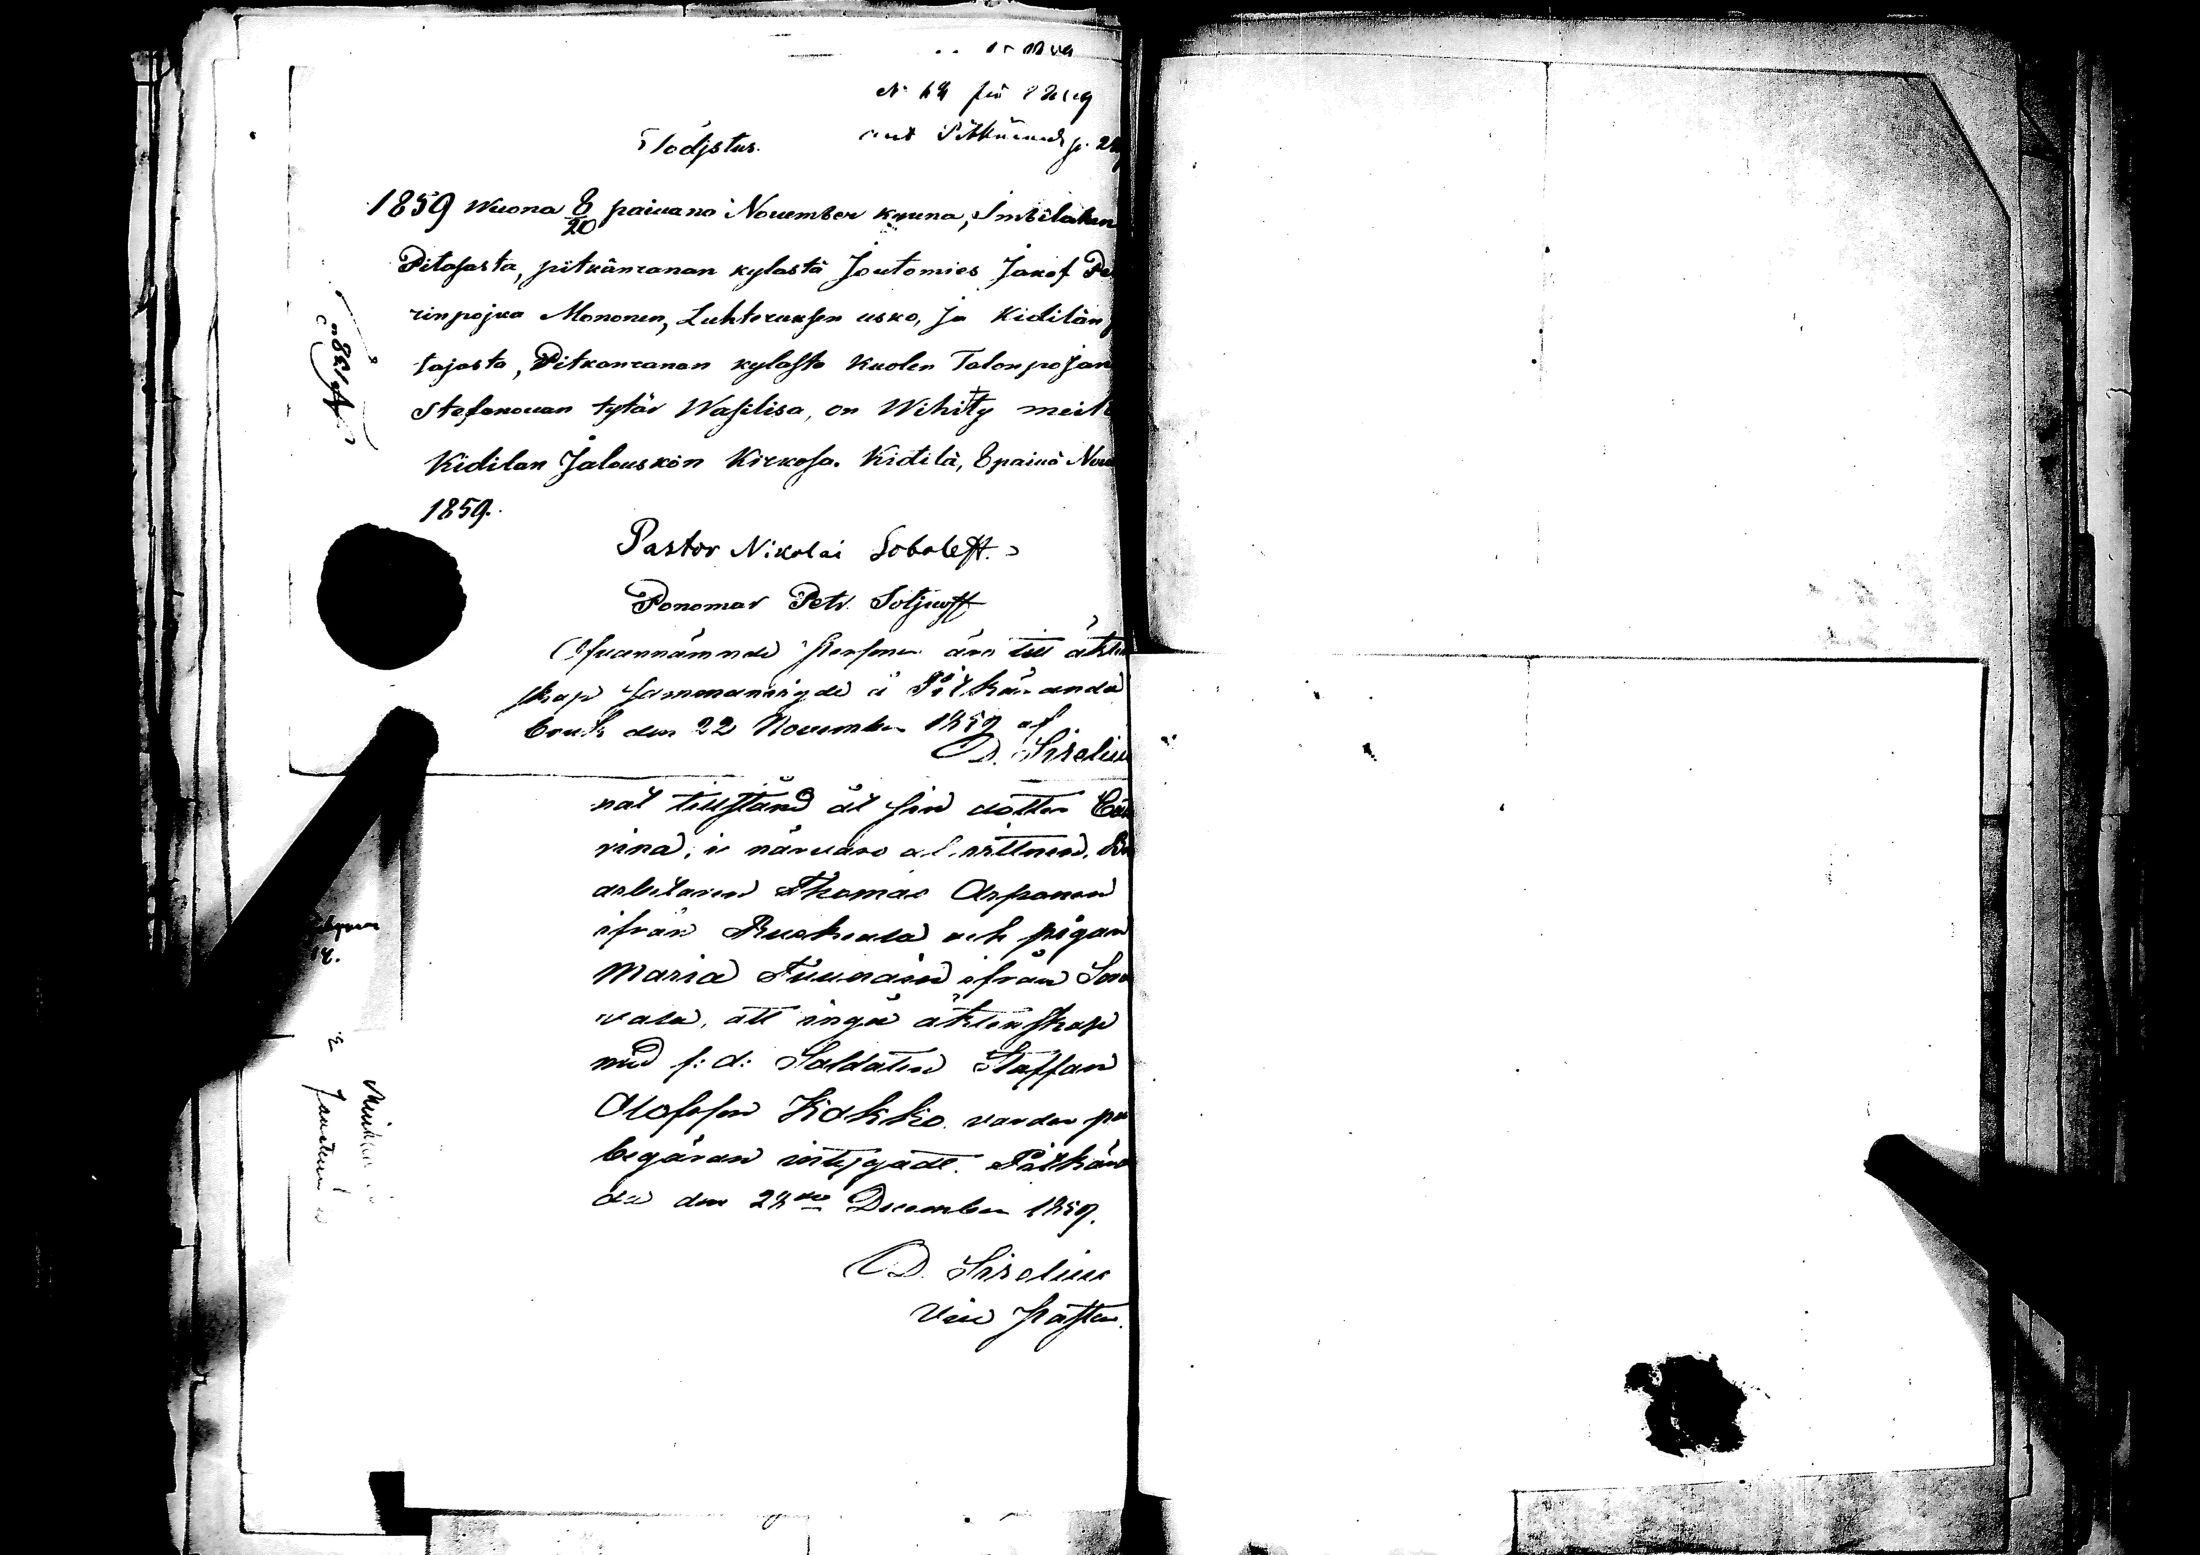 Todjstus.
1859 Wuona 8/20 paiuano November kuuna, Imbilahen
Pitajasta, pitkänranan kylastä Joutomies Jakof Pe
rinpojka Mononen, Luhteruksen usko, ja Kidilän
tajasta, Pitkanranan kylasta Kuolen Talonpojan
Stefanouan tytär Wasilisa, on Wihitty meil
Kidilan Jalouskon Kirkosa. Kidilä, 8 paiuä Nou
1859.
Pastor Nikolai Soboleff.
Ponomar Petr. Sotjeoff
Ofvannämnde Personer äro till äkten
skap sammanvigde å Pitkäranda
bruk den 22 November 1859 af
D. Sirelius
nat tillstånd åt sin dotter
rina, i närvaro af vittnen,
arbetaren Thomas Asponen
ifrån Ruskeala och pigan
Maria Tuunain ifrån Sor
vala, att ingå äktenskap
med f: d: Soldaten Staffan
Olofsson Kokko. varder på
begäran intygadt. Pitkäran
da den 28de December 1859.
D. Sirelius
Vice Pastor.